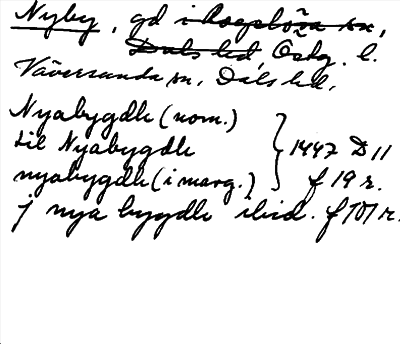 Nyby, gd i Rogslösa sn,
Dals hd, Östg. l.
Väversunda sn, Dals hd.
Nyabygdh (nom.)
til Nyabygdh } 1447 D 11
nyabygdh (i marg.) } f 19 r.
j nya bygdh ibid. f 101 r.